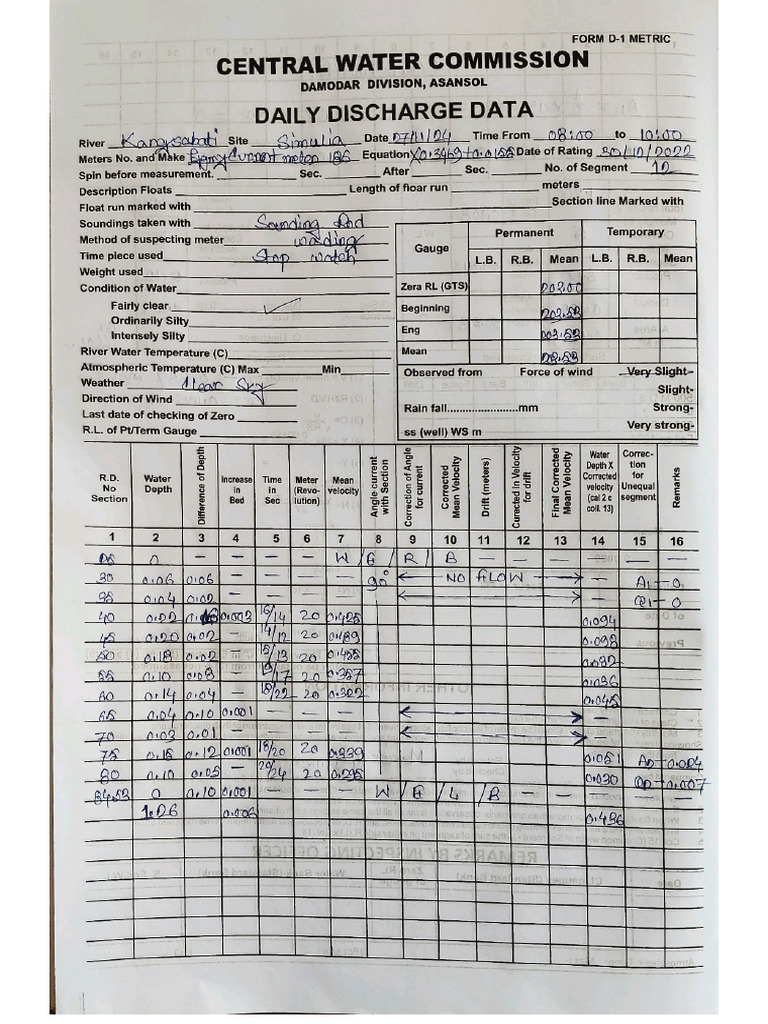 FORM D-1 METRIC
CENTRAL WATER COMMISSION
DAMODAR DIVISION, ASANSOL
DAILY DISCHARGE DATA
River Kangsabati Site Simulia Date 27/11/24 Time From 08:00 to 10:00
Meters No. and Make Current meter Equation Date of Rating 30/10/2022
Spin before measurement. Sec. After Sec. No. of Segment 12
Description Floats Length of floar run meters
Float run marked with Section line Marked with
Soundings taken with Sounding Rod
Method of suspecting meter wading
Time piece used Stop watch
Weight used
Condition of Water
Fairly clear ✓
Ordinarily Silty
Intensely Silty
River Water Temperature (C)
Atmospheric Temperature (C) Max Min
Weather Clear Sky
Direction of Wind
Last date of checking of Zero
R.L. of Pt/Term Gauge
Gauge Permanent Temporary
L.B. R.B. Mean L.B. R.B. Mean
Zera RL (GTS) 202.00
Beginning 202.53
Eng
Mean
Observed from Force of wind Very Slight
Slight-
Rain fall........................mm Strong-
ss (well) WS m Very strong-
R.D. No Section Water Depth Difference of Depth Increase in Bed Time in Sec Meter (Revo-lution) Mean velocity Angle current with Section Correction of Angle for current Corrected Mean Velocity Drift (meters) Curected in Velocity for drift Final Corrected Mean Velocity Water Depth X Corrected velocity (cal 2 c coll. 13) Correc-tion for Unequal segment Remarks
1 2 3 4 5 6 7 8 9 10 11 12 13 14 15 16
0 — — — — — W / E / R / B — — — — — —
30 0.06 0.06 — — — — 90° NO FLOW — A1 — 0
35 0.04 0.02 — — — — —
40 0.22 0.003 16/14 20 0.425 0.094
45 0.20 0.02 — 14/12 20 0.489 0.098
50 0.18 0.02 — 15/13 20 0.455
55 0.10 0.08 — 20 0.357 0.036
60 0.14 0.04 — 22 20 0.322 0.045
65 0.04 0.10 0.001 — — — —
70 0.03 0.01 — — — — —
75 0.15 0.12 0.001 18/20 20 0.339 0.051
80 0.10 0.05 — 20/24 20 0.295 0.030 0.007
84.53 0 0.10 0.001 — — — W / E / L / B — — — — —
1.26 0.006 0.436